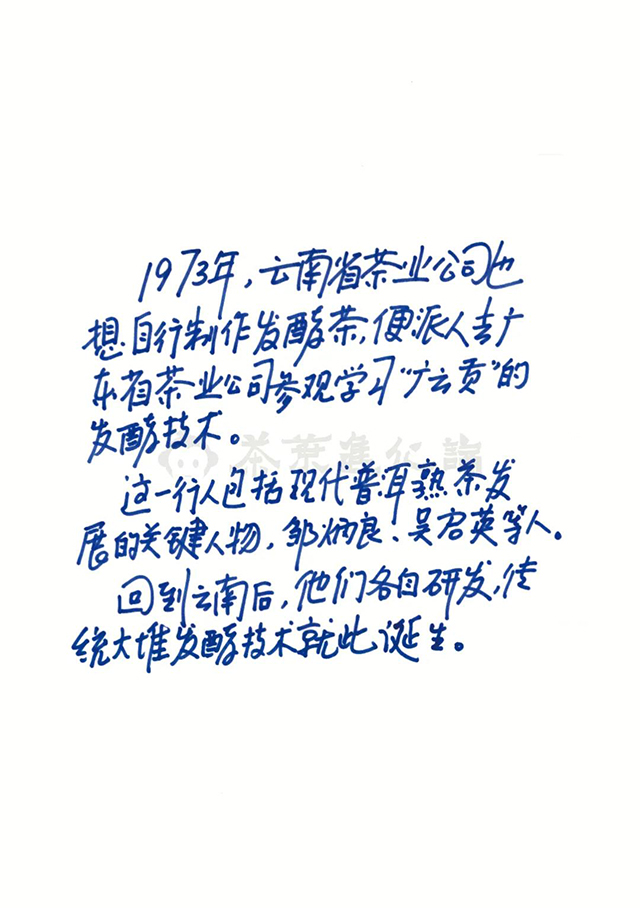 1973年，云南省茶业公司也
想自行制作发酵茶，便派人去广
东省茶业公司参观学习“广云贡”的
发酵技术。
茶葉進化論
这一行人包括现代普洱熟茶发
展的关键人物，邹炳良、吴启英等人。
回到云南后，他们各自研发，传
统大堆发酵技术就此诞生。